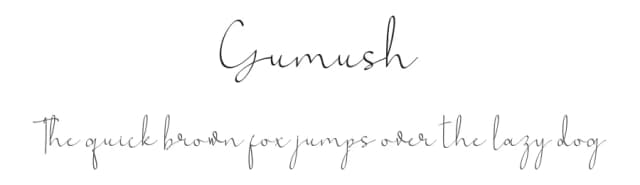 Gumush
The quick brown fox jumps over the lazy dog